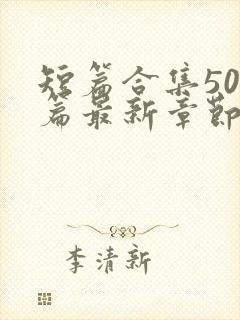 短篇合集50
篇最新章节
李清新